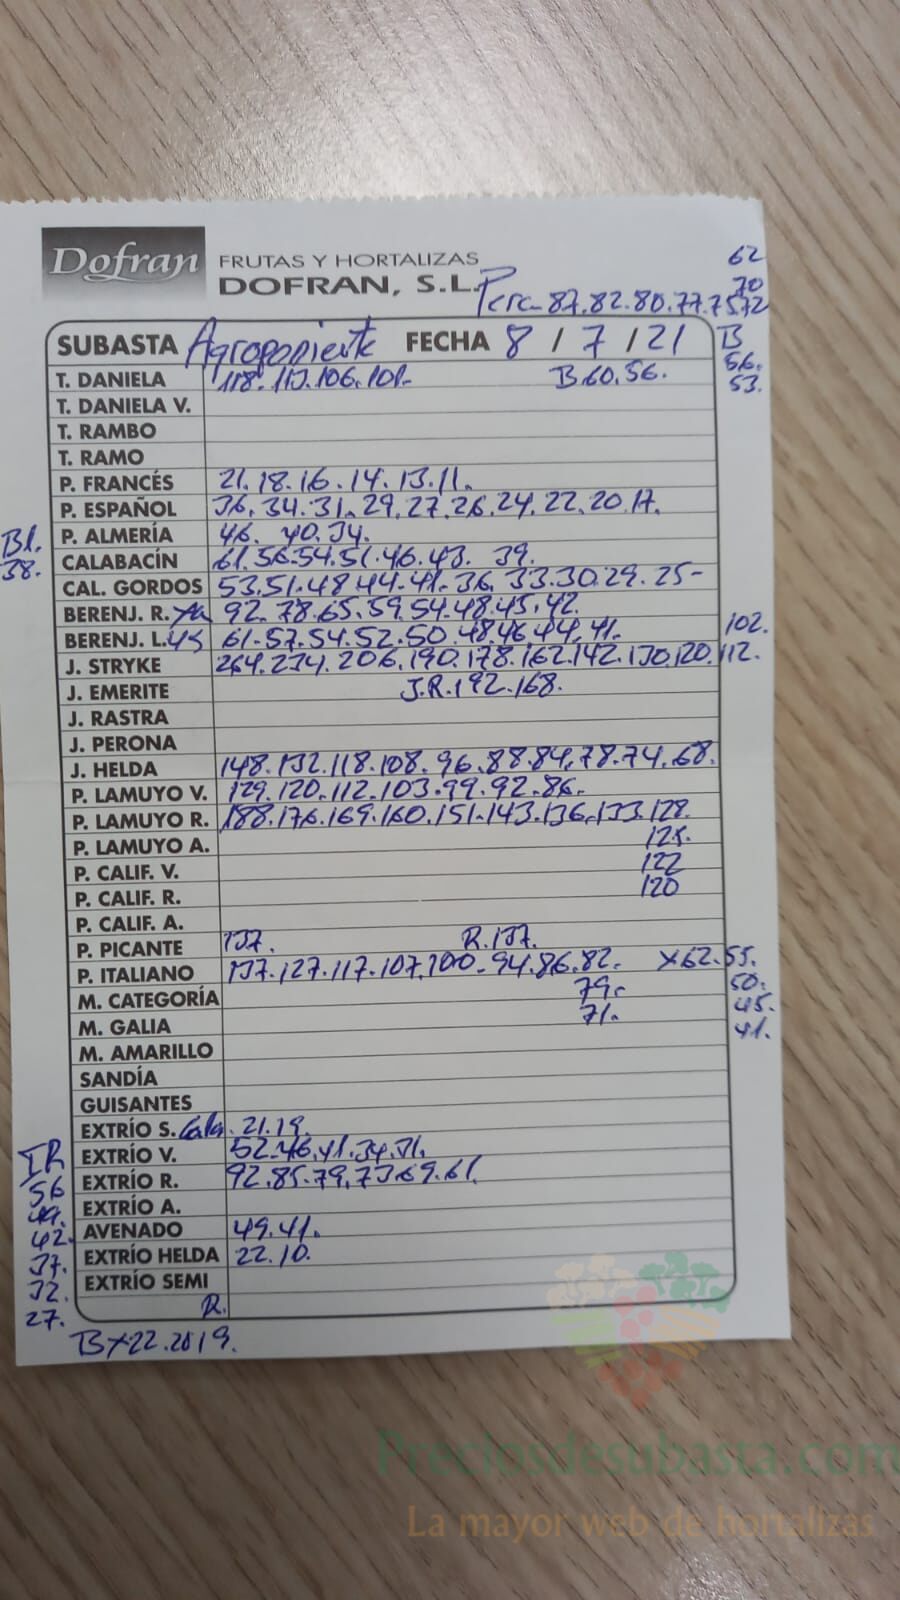 Dofran
FRUTAS Y HORTALIZAS
DOFRAN, S.L.
62
70
Pera 87.82.80.77.75.72
SUBASTA Agroponiente FECHA 8 / 7 / 21 B
56.
53.
T. DANIELA 118.113.106.101. B.60.56.
T. DANIELA V.
T. RAMBO
T. RAMO
P. FRANCÉS 21.18.16.14.13.11.
P. ESPAÑOL 36.34.31.29.27.26.24.22.20.17.
P. ALMERÍA 46. 40.34.
Bl.
38.
CALABACÍN 61.56.54.51.46.43. 39.
CAL. GORDOS 53.51.48.44.41.36.33.30.29.25-
BERENJ. R. 92.78.65.59.54.48.45.42.
BERENJ. L. 45 61-57.54.52.50.48.46.44.41.
102.
J. STRYKE 264.234.206.190.178.162.142.130.120.112.
J. EMERITE J.R.192.168.
J. RASTRA
J. PERONA
J. HELDA 148.132.118.108.96.88.84.78.74.68.
P. LAMUYO V. 129.120.112.103.99.92.86.
P. LAMUYO R. 188.176.169.160.151.143.136.133.128.
P. LAMUYO A. 125.
P. CALIF. V. 122
P. CALIF. R. 120
P. CALIF. A.
P. PICANTE 137. R.137.
P. ITALIANO 137.127.117.107.100.94.86.82. X62.55.
M. CATEGORÍA 79. 50.
M. GALIA 71. 45.
41.
M. AMARILLO
SANDÍA
GUISANTES
EXTRÍO S. Cala. 21.19.
EXTRÍO V. 52.46.41.34.31.
EXTRÍO R. 92.85.79.73.69.61.
EXTRÍO A.
AVENADO 49.41.
EXTRÍO HELDA 22.10.
EXTRÍO SEMI
R.
IR
56
49.
42.
37.
32.
27.
BX22.2019.
Preciosdesubasta.com
La mayor web de hortalizas